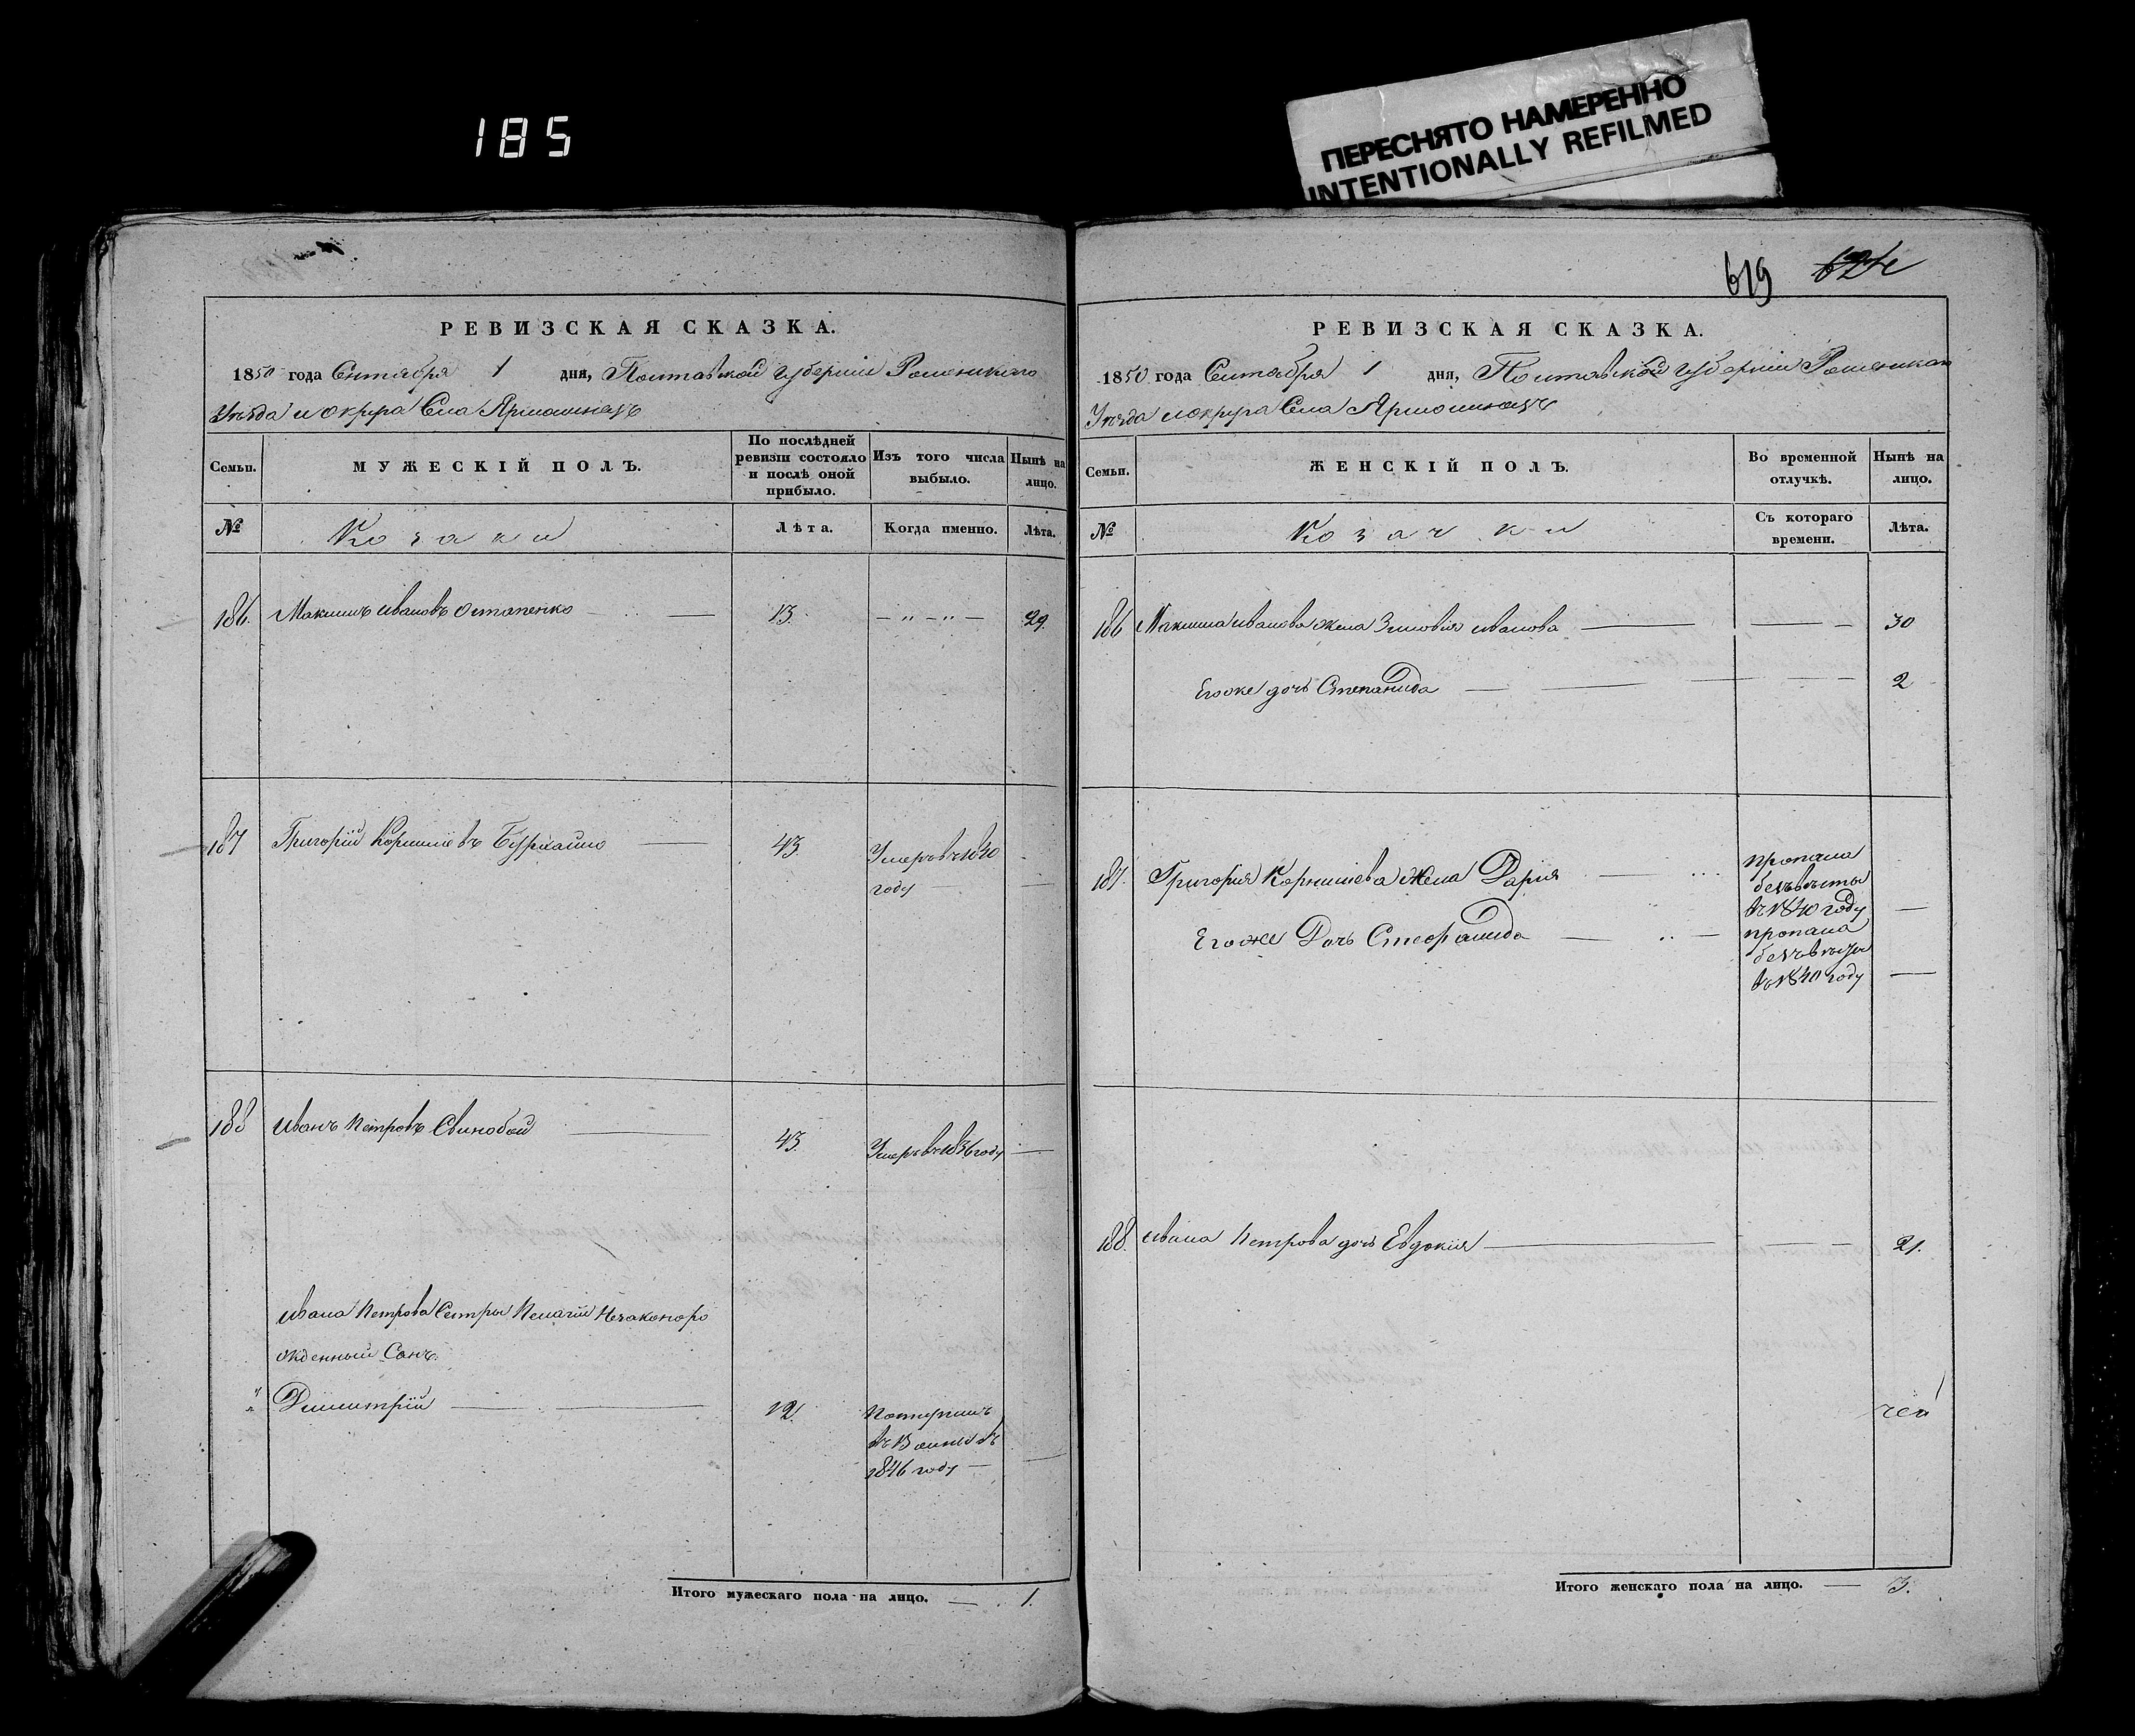 185
ПЕРЕСНЯТО НАМЕРЕННО
INTENTIONALLY REFILMED
619 624
РЕВИЗСКАЯ СКАЗКА.
1850 года Сентября 1 дня, Полтавской губернии Роменского
Уезда и округа Села Ярмолинець
Семьи.
МУЖЕСКІЙ ПОЛЪ.
По послѣдней ревизіи состояло и послѣ оной прибыло.
Изъ того числа выбыло.
Нынѣ на лицо.
№
Козаки
Лѣта.
Когда именно.
Лѣта.
186. Максимъ Ивановъ Остапенко 13. 29.
187 Григорій Корниліевъ 43. Умеръ въ 1840
году
188 Иванъ Петровъ Свинобой 43. Умеръ въ 1836 году
Ивана Петрова Сестры Пелагіи Незаконоро
жденный Сынъ.
Димитрій 12.
1846 году
Итого мужескаго пола на лицо. 1.
РЕВИЗСКАЯ СКАЗКА.
1850 года Сентября 1 дня, Полтавской губерніи Роменскаго
Уезда и округа Села Ярмолинець
Семьи.
ЖЕНСКІЙ ПОЛЪ.
Во временной отлучкѣ.
Нынѣ на лицо.
№
Козачки
Съ котораго времени.
Лѣта.
186 Максима Иванова жена Зиновія Иванова 30
Егоже дочь Степанида 2
187. Григорія Корниліева жена Дарія пропала
безъ вѣсты
въ 1840 году
Егоже Дочь Стефанида пропала
безъ вѣсты
въ 1840 году
188. Ивана Петрова дочь Евдокія 21.
Итого женскаго пола на лицо. 3.